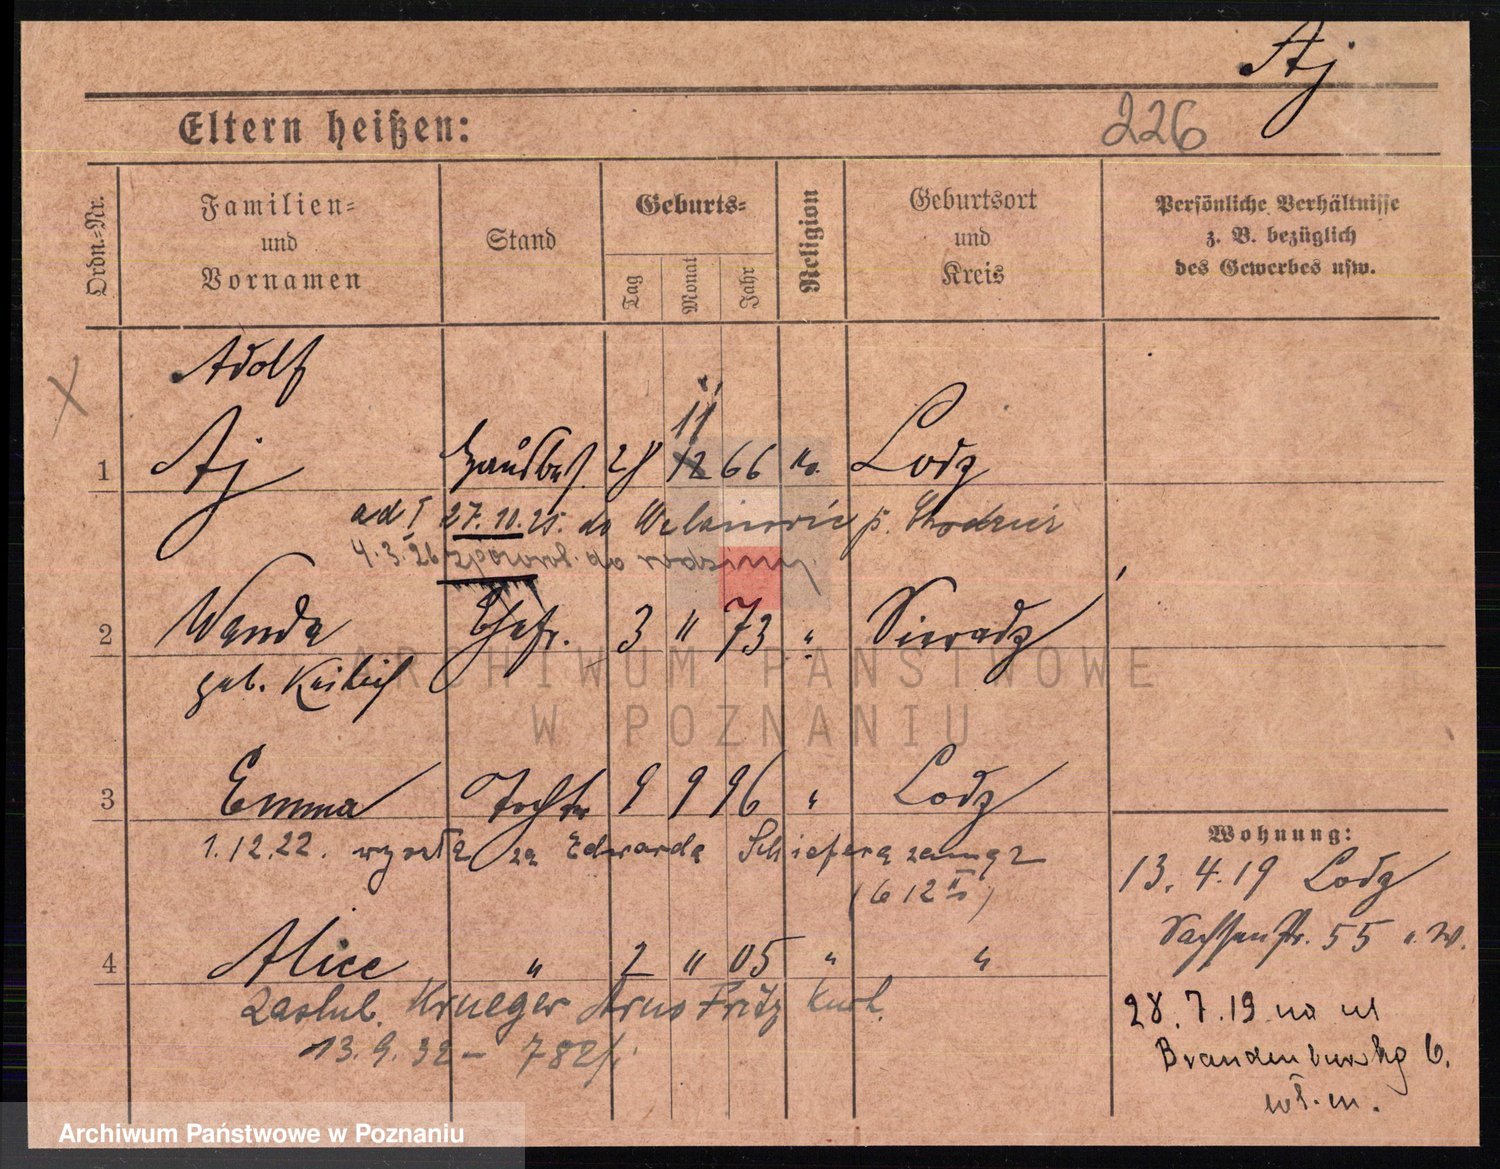 Aj
226
Eltern heißen:
Ordn.-Nr.
Familien-
und
Vornamen
Stand
Geburts-
Tag
Monat
Jahr
Religion
Geburtsort
und
Kreis
Persönliche Verhältnisse
z. B. bezüglich
des Gewerbes usw.
Adolf
11
1 Aj Hausbes. 28 12 66 Lodz
ad I 27.10.25. do p.
4.3.26 do rodziny
2 Wanda Ehefr. 3 " 73 " Sieradz
geb.
3 Emma Tochter 9 9 96 " Lodz
1.12.22. wyszła za Edwarda Schiefera zamąż
4 Alice " 2 " 05 " "
Zaślub. Krueger Arno Fritz
13.9.32 – 782/
Wohnung:
13. 4.19 Lodz
Sachsenstr. 55
28.7.19 na ul
Brandenburską 6.
wł. m.
ARCHIWUM PAŃSTWOWE
W POZNANIU
Archiwum Państwowe w Poznaniu